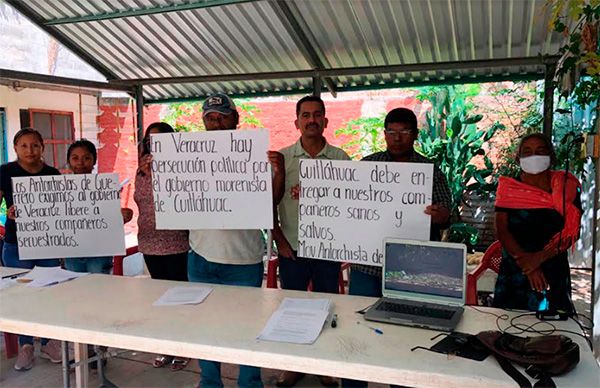 Los Antorchistas de Guerr
rero exigimos al gobierno
de Veracruz libere a
nuestros compañeros
secuestrados.
En Veracruz hay
persecución política por
el gobierno morenista
de Cuitláhuac.
Cuitláhuac debe en-
tregar a nuestros com-
pañeros sanos y
salvos.
Mov. Antorchista de